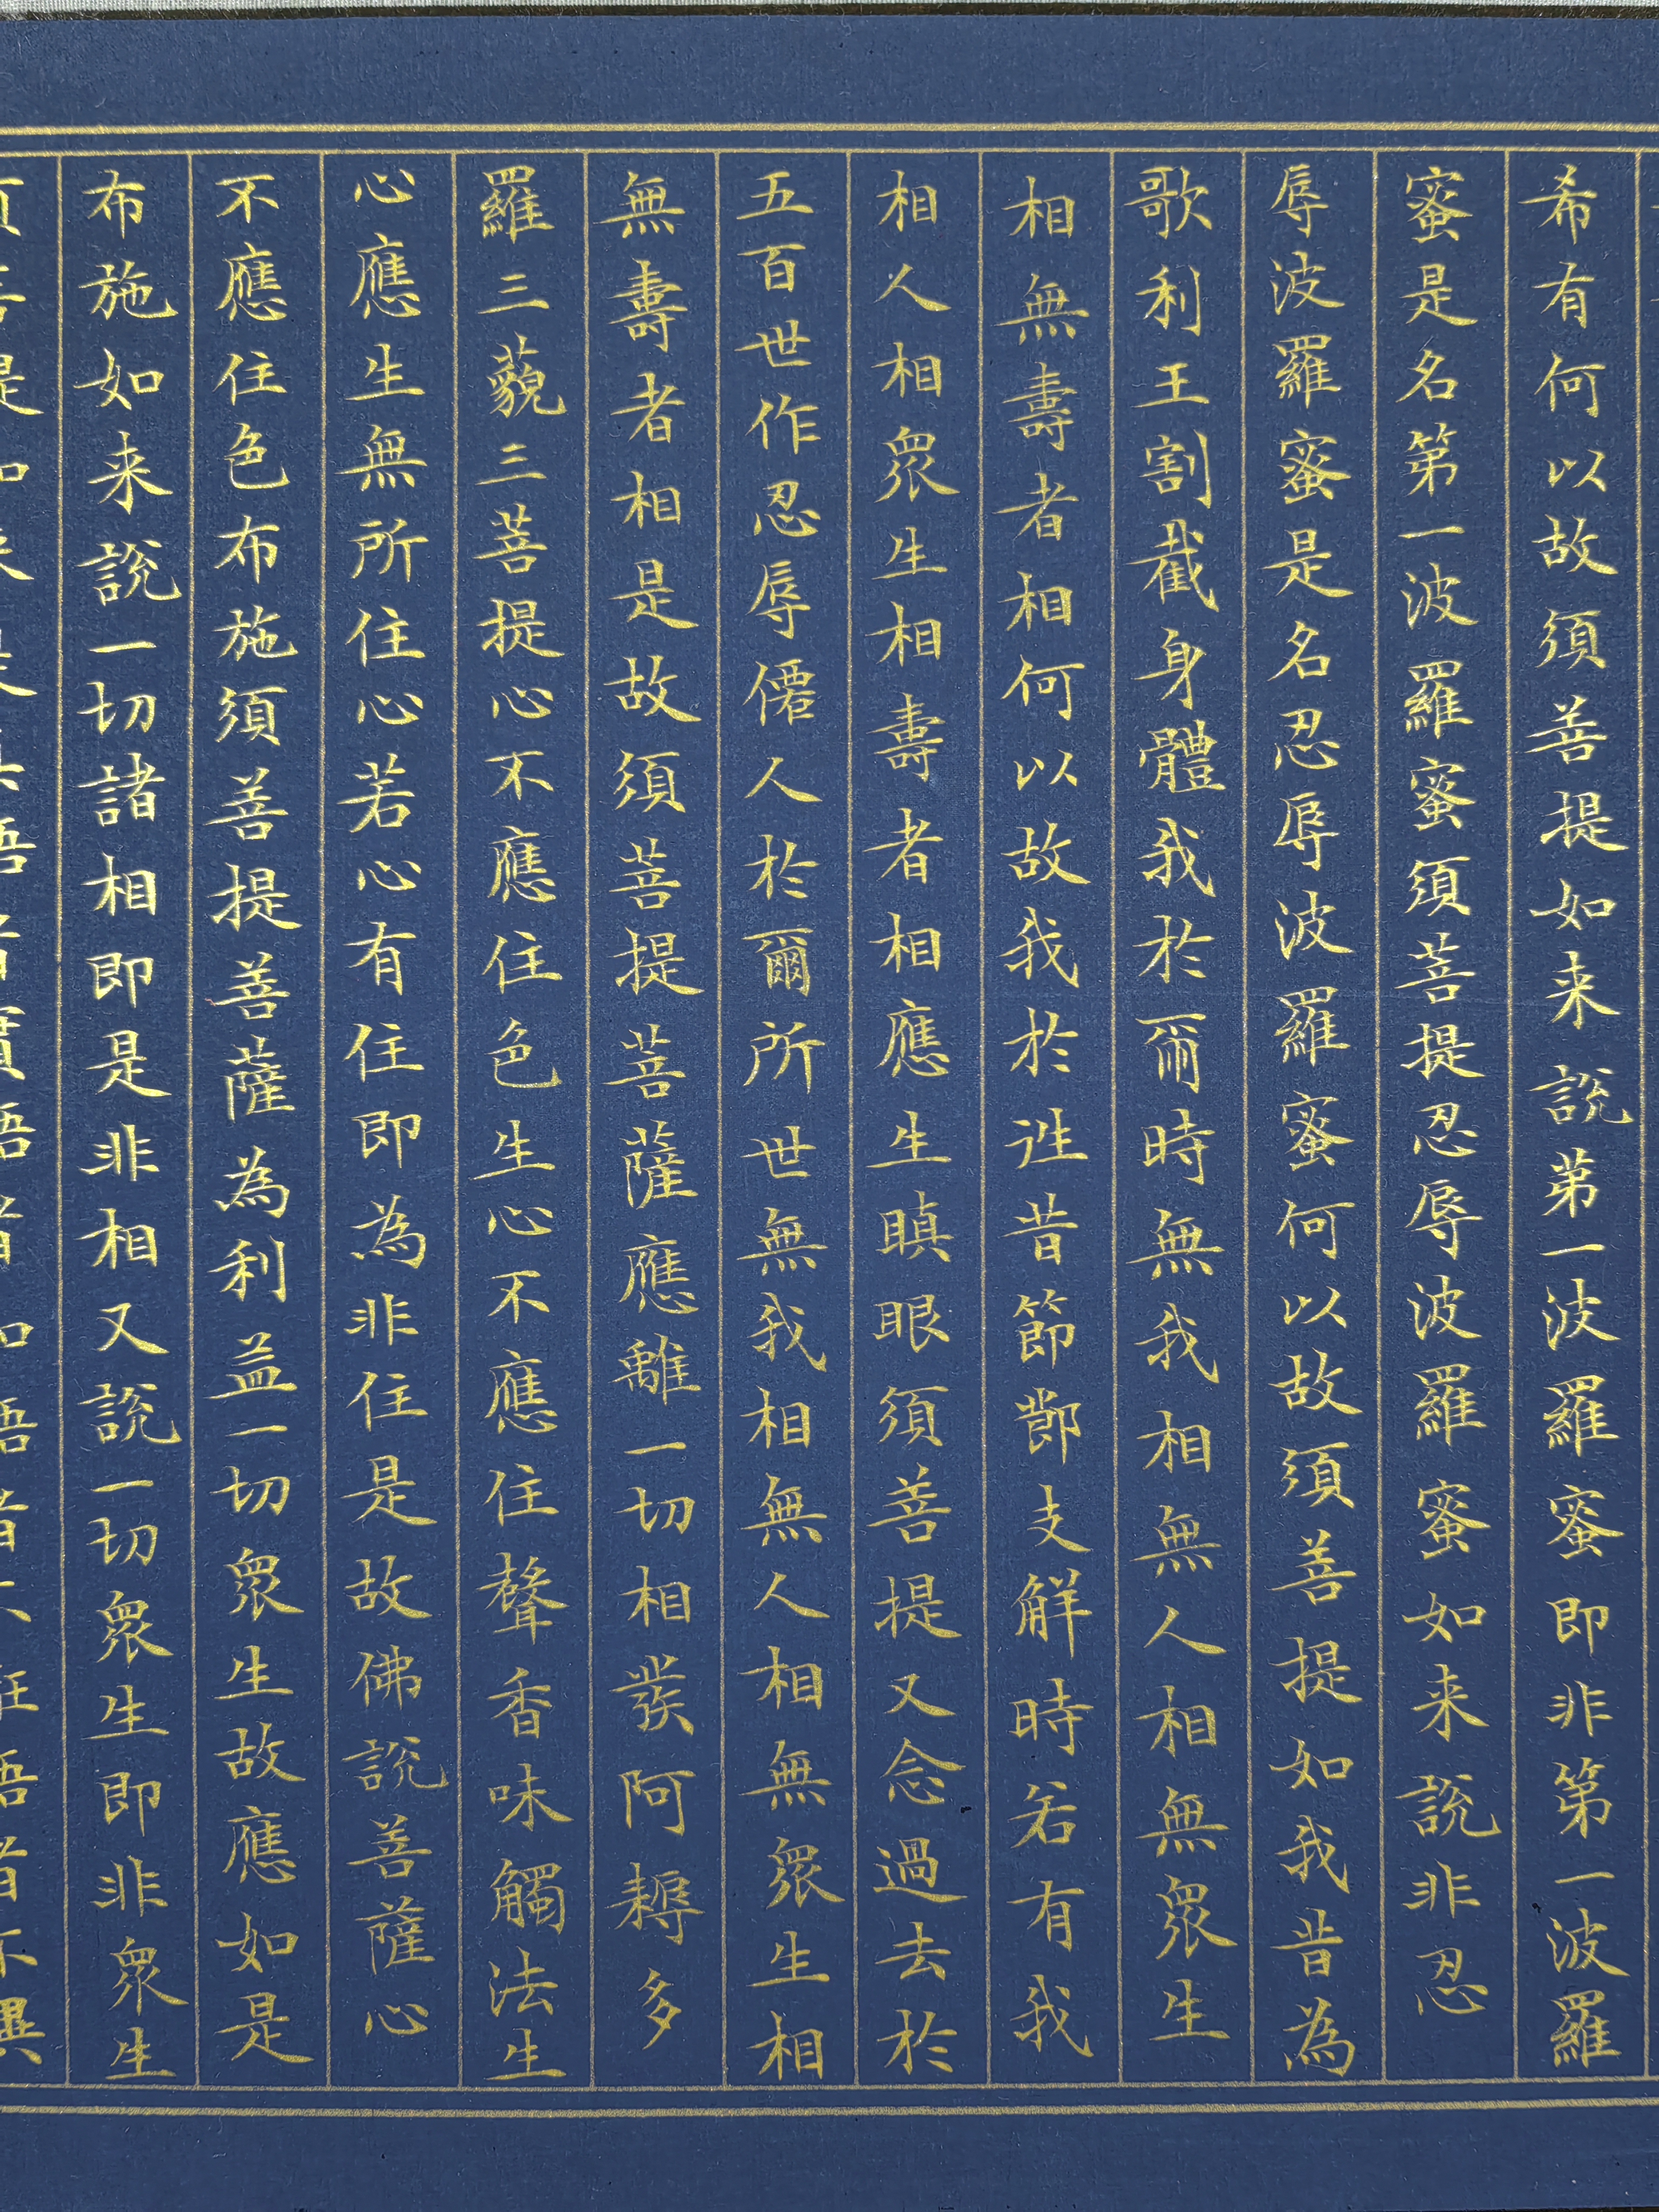 希有何以故須菩提如来說苐一波羅蜜即非第一波羅
蜜是名第一波羅蜜須菩提忍辱波羅蜜如来說非忍
辱波羅蜜是名忍辱波羅蜜何以故須菩提如我昔為
歌利王割截身體我於爾時無我相無人相無眾生
相無壽者相何以故我於往昔節節支解時若有我
相人相眾生相壽者相應生瞋眼須菩提又念過去於
五百世作忍辱僊人於爾所世無我相無人相無眾生相
無壽者相是故須菩提菩薩應離一切相發阿耨多
羅三藐三菩提心不應住色生心不應住聲香味觸法生
心應生無所住心若心有住即為非住是故佛說菩薩心
不應住色布施須菩提菩薩為利益一切眾生故應如是
布施如来說一切諸相即是非相又說一切眾生即非眾生